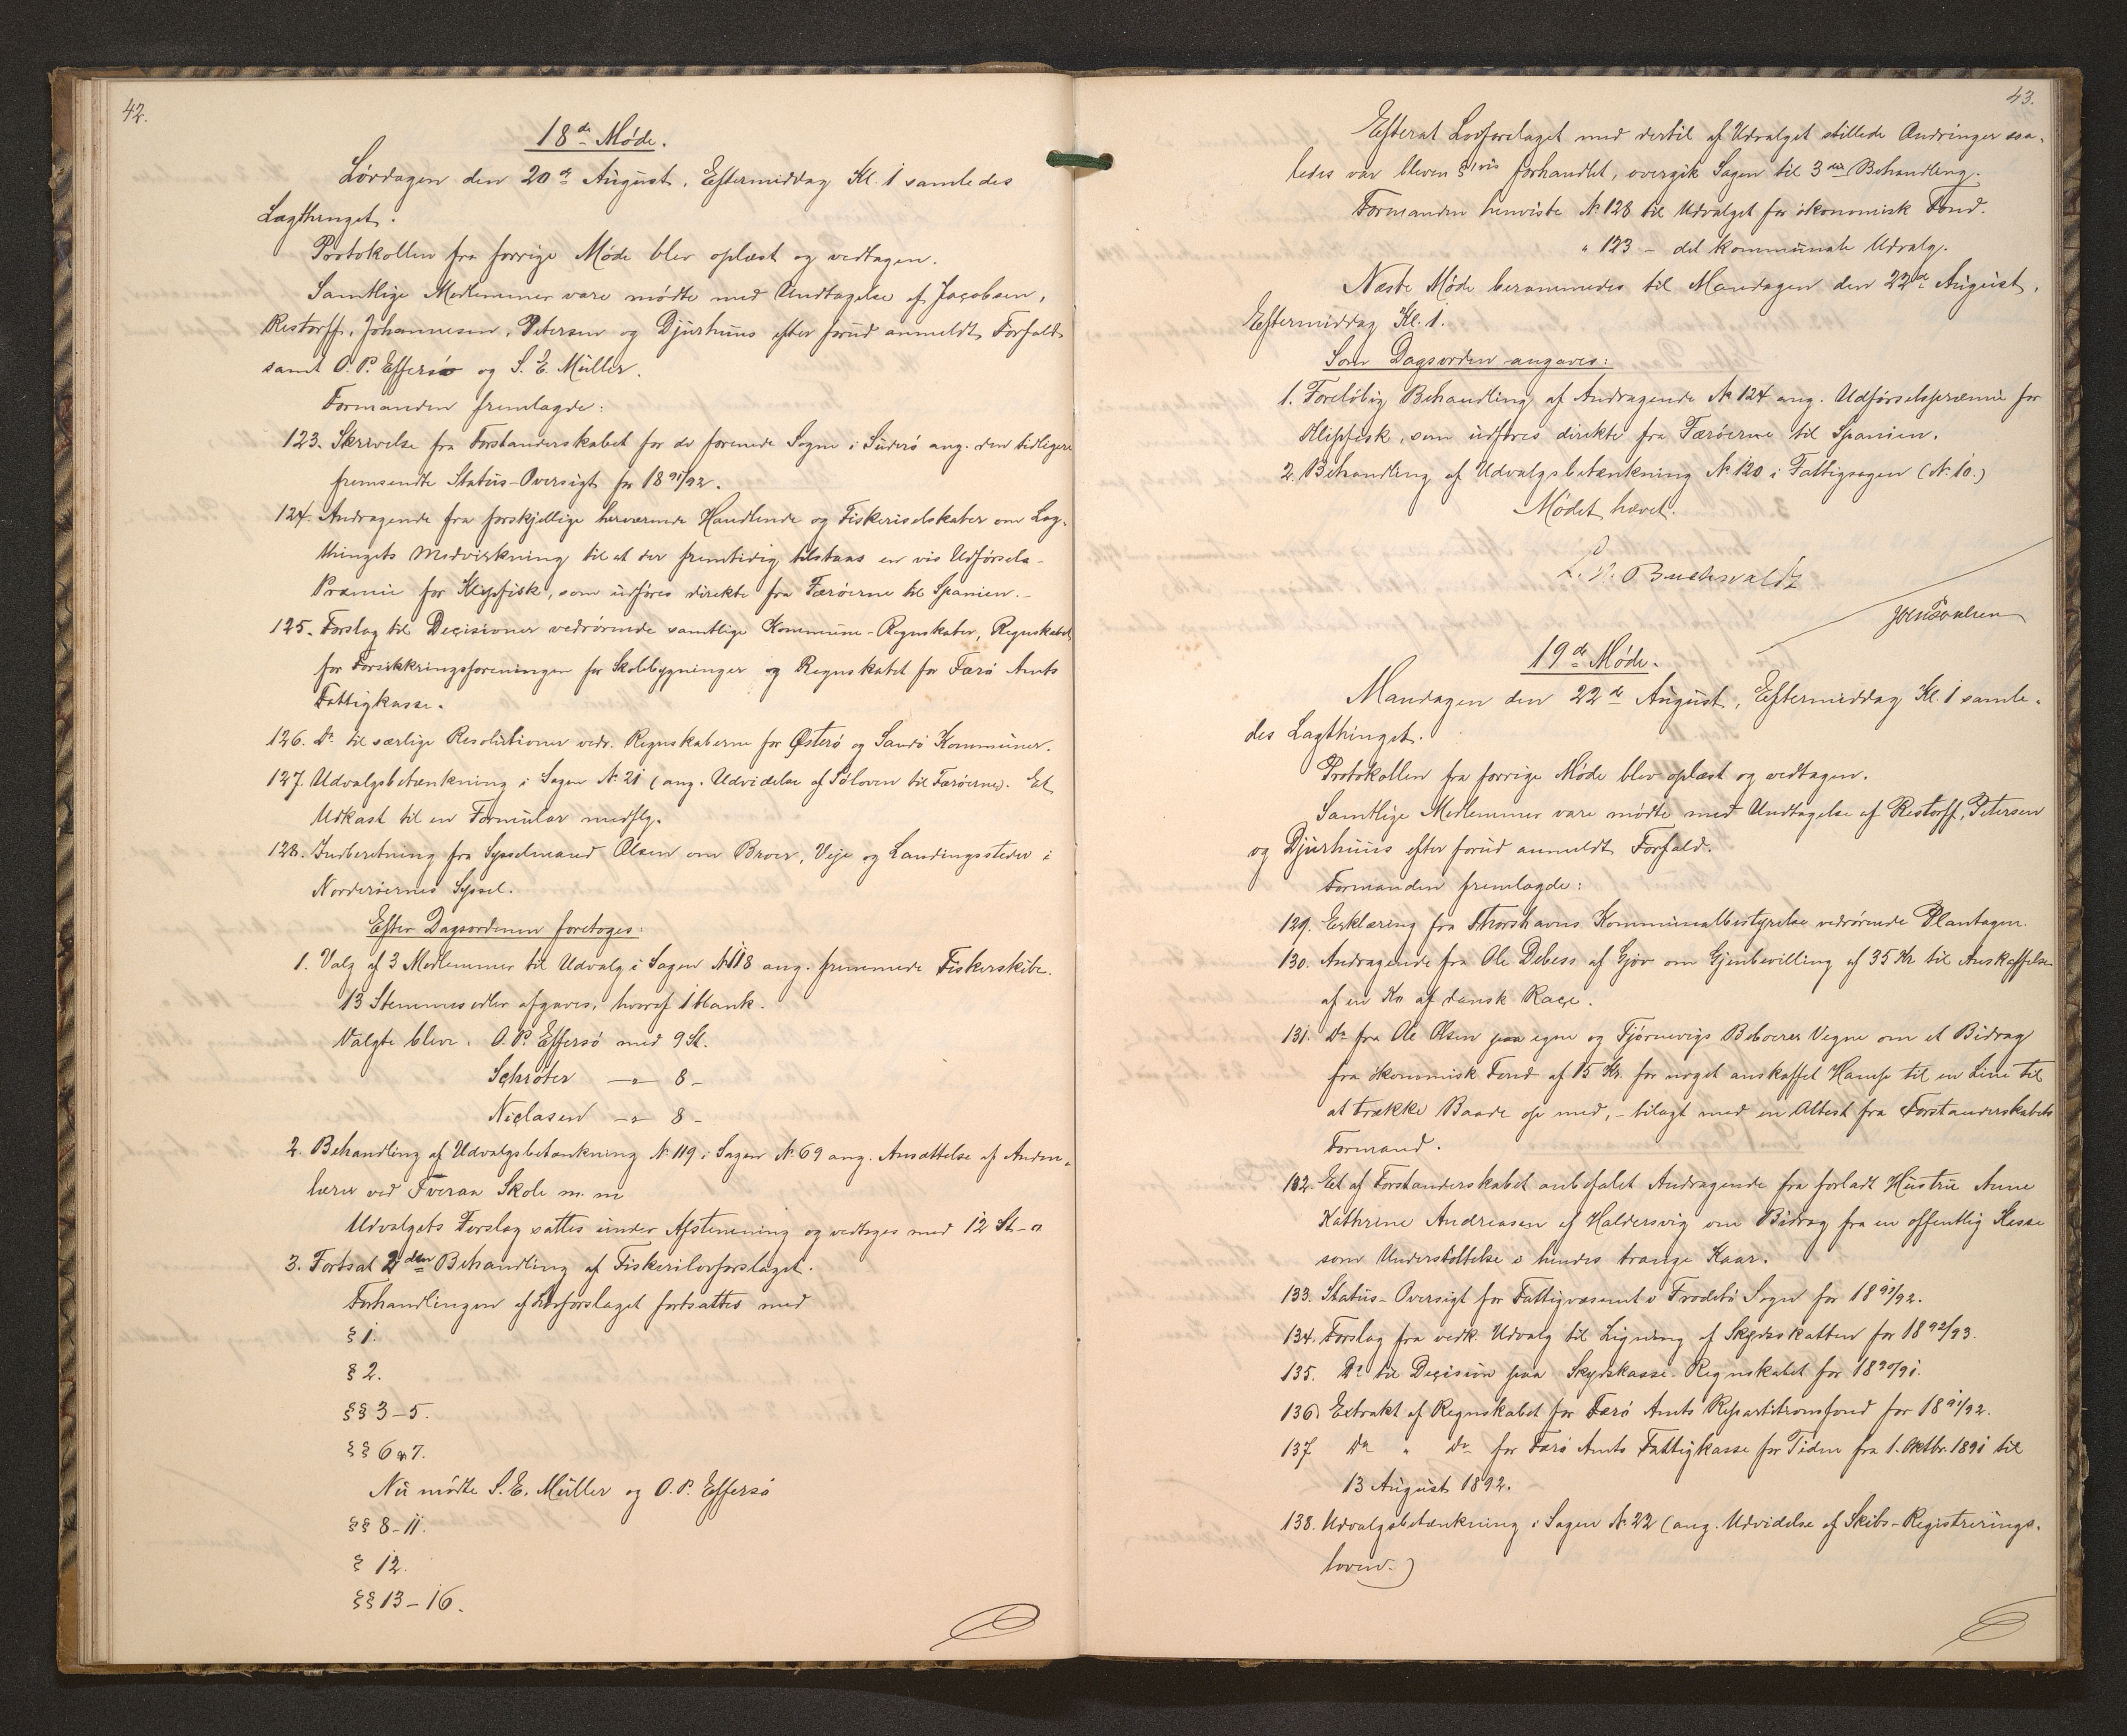 42.
18de Møde.
Lørdagen den 20de August, Eftermiddag Kl. 1 samledes
Lagthinget.
Protokollen fra forrige Møde blev oplæst og vedtagen.
Samtlige Medlemmer vare mødte med Undtagelse af Jacobsen,
Restorff, Johannesen, Petersen og Djurhuus efter forud anmeldt Forfald
samt O. P. Effersø og S. E. Müller.
Formanden fremlagde:
123. Skrivelse fra Forstanderskabet for de forenede Sogne i Suderø ang. den tidligere
fremsendte Status-Oversigt for 1891/92.
124. Andragende fra forskjellige herværende Handlende og Fiskeriselskaber om Lag-
thingets Medvirkning til at der fremtidig tilstaas en vis Udførsels-
Præmie for Klipfisk, som udføres direkte fra Færøerne til Spanien.-
125. Forslag til Decisioner vedrørende samtlige Kommune-Regnskaber, Regnskabet
for Forsikkringsforeningen for Skolebygninger og Regnskabet for Færø Amts
Fattigkasse.
126. Do til særlige Resolutioner vedr. Regnskaberne for Østerø og Sandø Kommuner.
127. Udvalgsbetænkning i Sagen No 21 (ang. Udvidelse af Søloven til Færøerne). Et
Udkast til en Formular medflg.
128. Indberetning fra Sysselmand Olsen om Broer, Veje og Landingssteder i
Norderøernes Syssel.
Efter Dagsordenen foretoges:
1. Valg af 3 Medlemmer til Udvalg i Sagen No 118 ang. fremmede Fiskerskibe.
13 Stemmesedler afgaves, hvoraf 1 blank.
Valgte bleve: O. P. Effersø med 9 St.
Schrøter -"- 8 -
Niclasen -"- 8 -
2. Behandling af Udvalgsbetænkning No 119 i Sagen No 69 ang. Ansættelse af Anden-
lærer ved Tveraa Skole m. m
Udvalgets Forslag sattes under Afstemning og vedtoges med 12 St - o
3. Fortsat 2den Behandling af Fiskerilovforslaget.
Forhandlingen af Lovforslaget fortsattes med
§ 1.
§ 2.
§§ 3-5.
§§ 6 og 7.
Nu mødte S. E. Müller og O. P. Effersø
§§ 8-11.
§ 12.
§§ 13-16.
43.
Efterat Lovforslaget med dertil af Udvalget stillede Ændringer saa-
ledes var bleven §vis forhandlet, overgik Sagen til 3die Behandling.
Formanden henviste No 128 til Udvalget for økonomisk Fond.
" 123 - det kommunale Udvalg.
Næste Møde berammedes til Mandagen den 22de August,
Eftermiddag Kl. 1.
Som Dagsorden angaves:
1. Foreløbig Behandling af Andragende No 124 ang. Udførselspræmie for
Klipfisk, som udføres direkte fra Færøerne til Spanien.
2. Behandling af Udvalgsbetænkning No 120 i Fattigsagen (No 10.)
Mødet hævet.
Buchwaldt
19de Møde.
Mandagen den 22de August, Eftermiddag Kl. 1 samle-
des Lagthinget.
Protokollen fra forrige Møde blev oplæst og vedtagen.
Samtlige Medlemmer vare mødte med Undtagelse af Restorff, Petersen
og Djurhuus efter forud anmeldt Forfald.
Formanden fremlagde:
129. Erklæring fra Thorshavns Kommunalbestyrelse vedrørende Plantagen.
130. Andragende fra Ole Debess af Gjov om Gjenbevilling af 35 Kr til Anskaffelse
af en Ko af dansk Race.
131. Do fra Ole Olsen paa egne og Tjørnevigs Beboeres Vegne om et Bidrag
fra økonomisk Fond af 15 Kr. for noget anskaffet Hamp til en Line til
at trække Baade op med, - bilagt med en Attest fra Forstanderskabets
Formand.
132. Et af Forstanderskabet anbefalet Andragende fra forladt Hustru Anne
Kathrine Andreasen af Haldersvig om Bidrag fra en offentlig Kasse
som Understøttelse i hendes trange Kaar.
133. Status-Oversigt for Fattigvæsenet i Frodebø Sogn for 1891/92.
134. Forslag fra vedk. Udvalg til Ligning af Skydsskatten for 1892/93.
135. Do til Decision paa Skydskasse-Regnskabet for 1890/91.
136. Extrakt af Regnskabet for Færø Amts Repartitionsfond for 1891/92.
137. Do " Do for Færø Amts Fattigkasse for Tiden fra 1. Oktbr. 1891 til
13 August 1892.
138. Udvalgsbetænkning i Sagen No 22 (ang. Udvidelse af Skibs-Registrerings-
loven.)